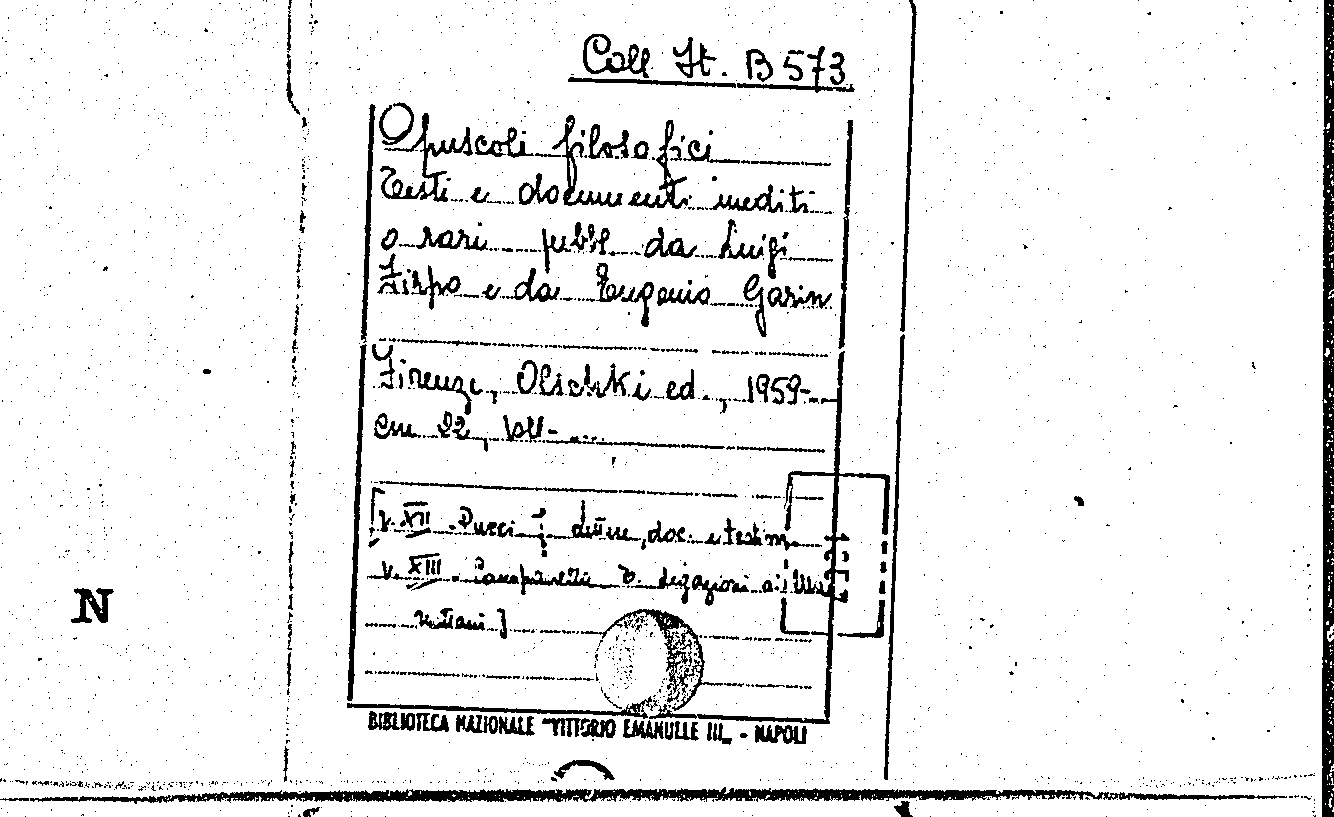 Coll It. B 573
Opuscoli filosofici
Testi e documenti inediti
o rari pubbl. da Luigi
Firpo e da Eugenio Garin
Firenze, Olschki ed., 1959-...
cm 22, voll- ...
[v. XII. Pucci F: lettere, doc. e testim.
v. XIII. Campanella T. Ligazioni ai
N
BIBLIOTECA NAZIONALE "VITTORIO EMANUELE III„ - NAPOLI